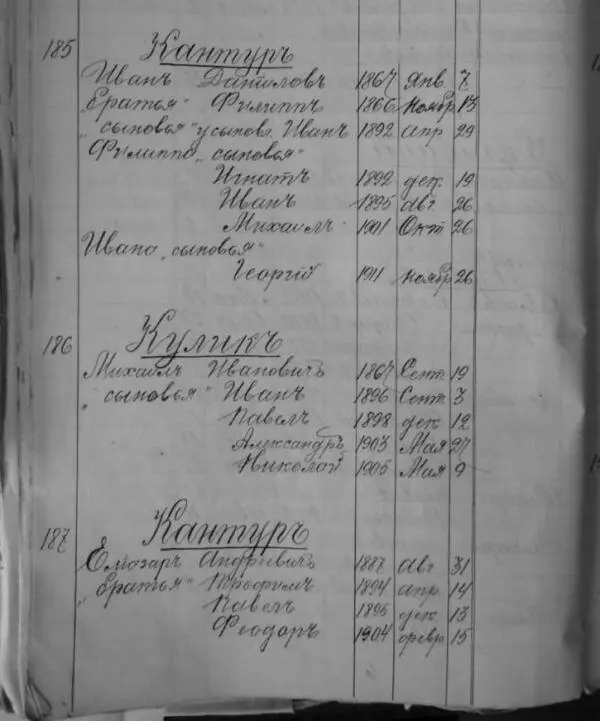 185 Кантуръ
Иванъ Даниловъ 1867 янв. 7
„братья" Филиппъ 1866 ноябр 13
„сыновья" усынов. Иванъ 1892 апр 29
Филиппа „сыновья"
Игнатъ 1892 дек. 19
Иванъ 1895 авг 26
Михаилъ 1901 Окт 26
Ивана „сыновья"
Георгій 1911 ноябр 26
186 Куликъ
Михаилъ Ивановичъ 1867 Сент 19
„сыновья" Иванъ 1896 Сент 3
Павелъ 1898 дек 12
Александръ 1903 Мая 27
Николай 1905 Мая 9
187 Кантуръ
Елиазаръ Андреевичъ 1887 авг 31
„братья" Трофимъ 1894 апр 14
Павелъ 1895 дек 13
Феодоръ 1904 февр 15